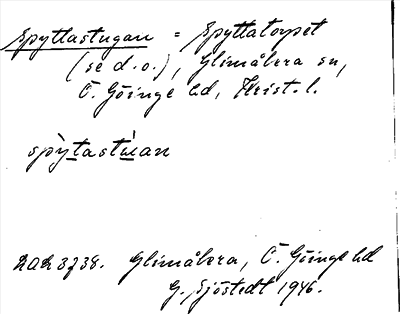 Spyttastugan = Spyttatorpet
(se d.o.), Glimåkra sn,
Ö. Göinge hd, Krist. l.
spỳtastùan
DAL 3738. Glimåkra, Ö. Göinge hd
G. Sjöstedt 1946.